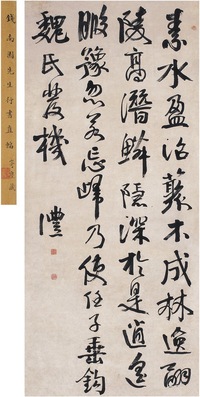 素水盈沼叢木成林逸翮
陵高潛鱗隱深於是逍遙
暇豫忽若忘歸乃使任子垂鉤
魏氏發機 灃
錢南園先生行書直幅